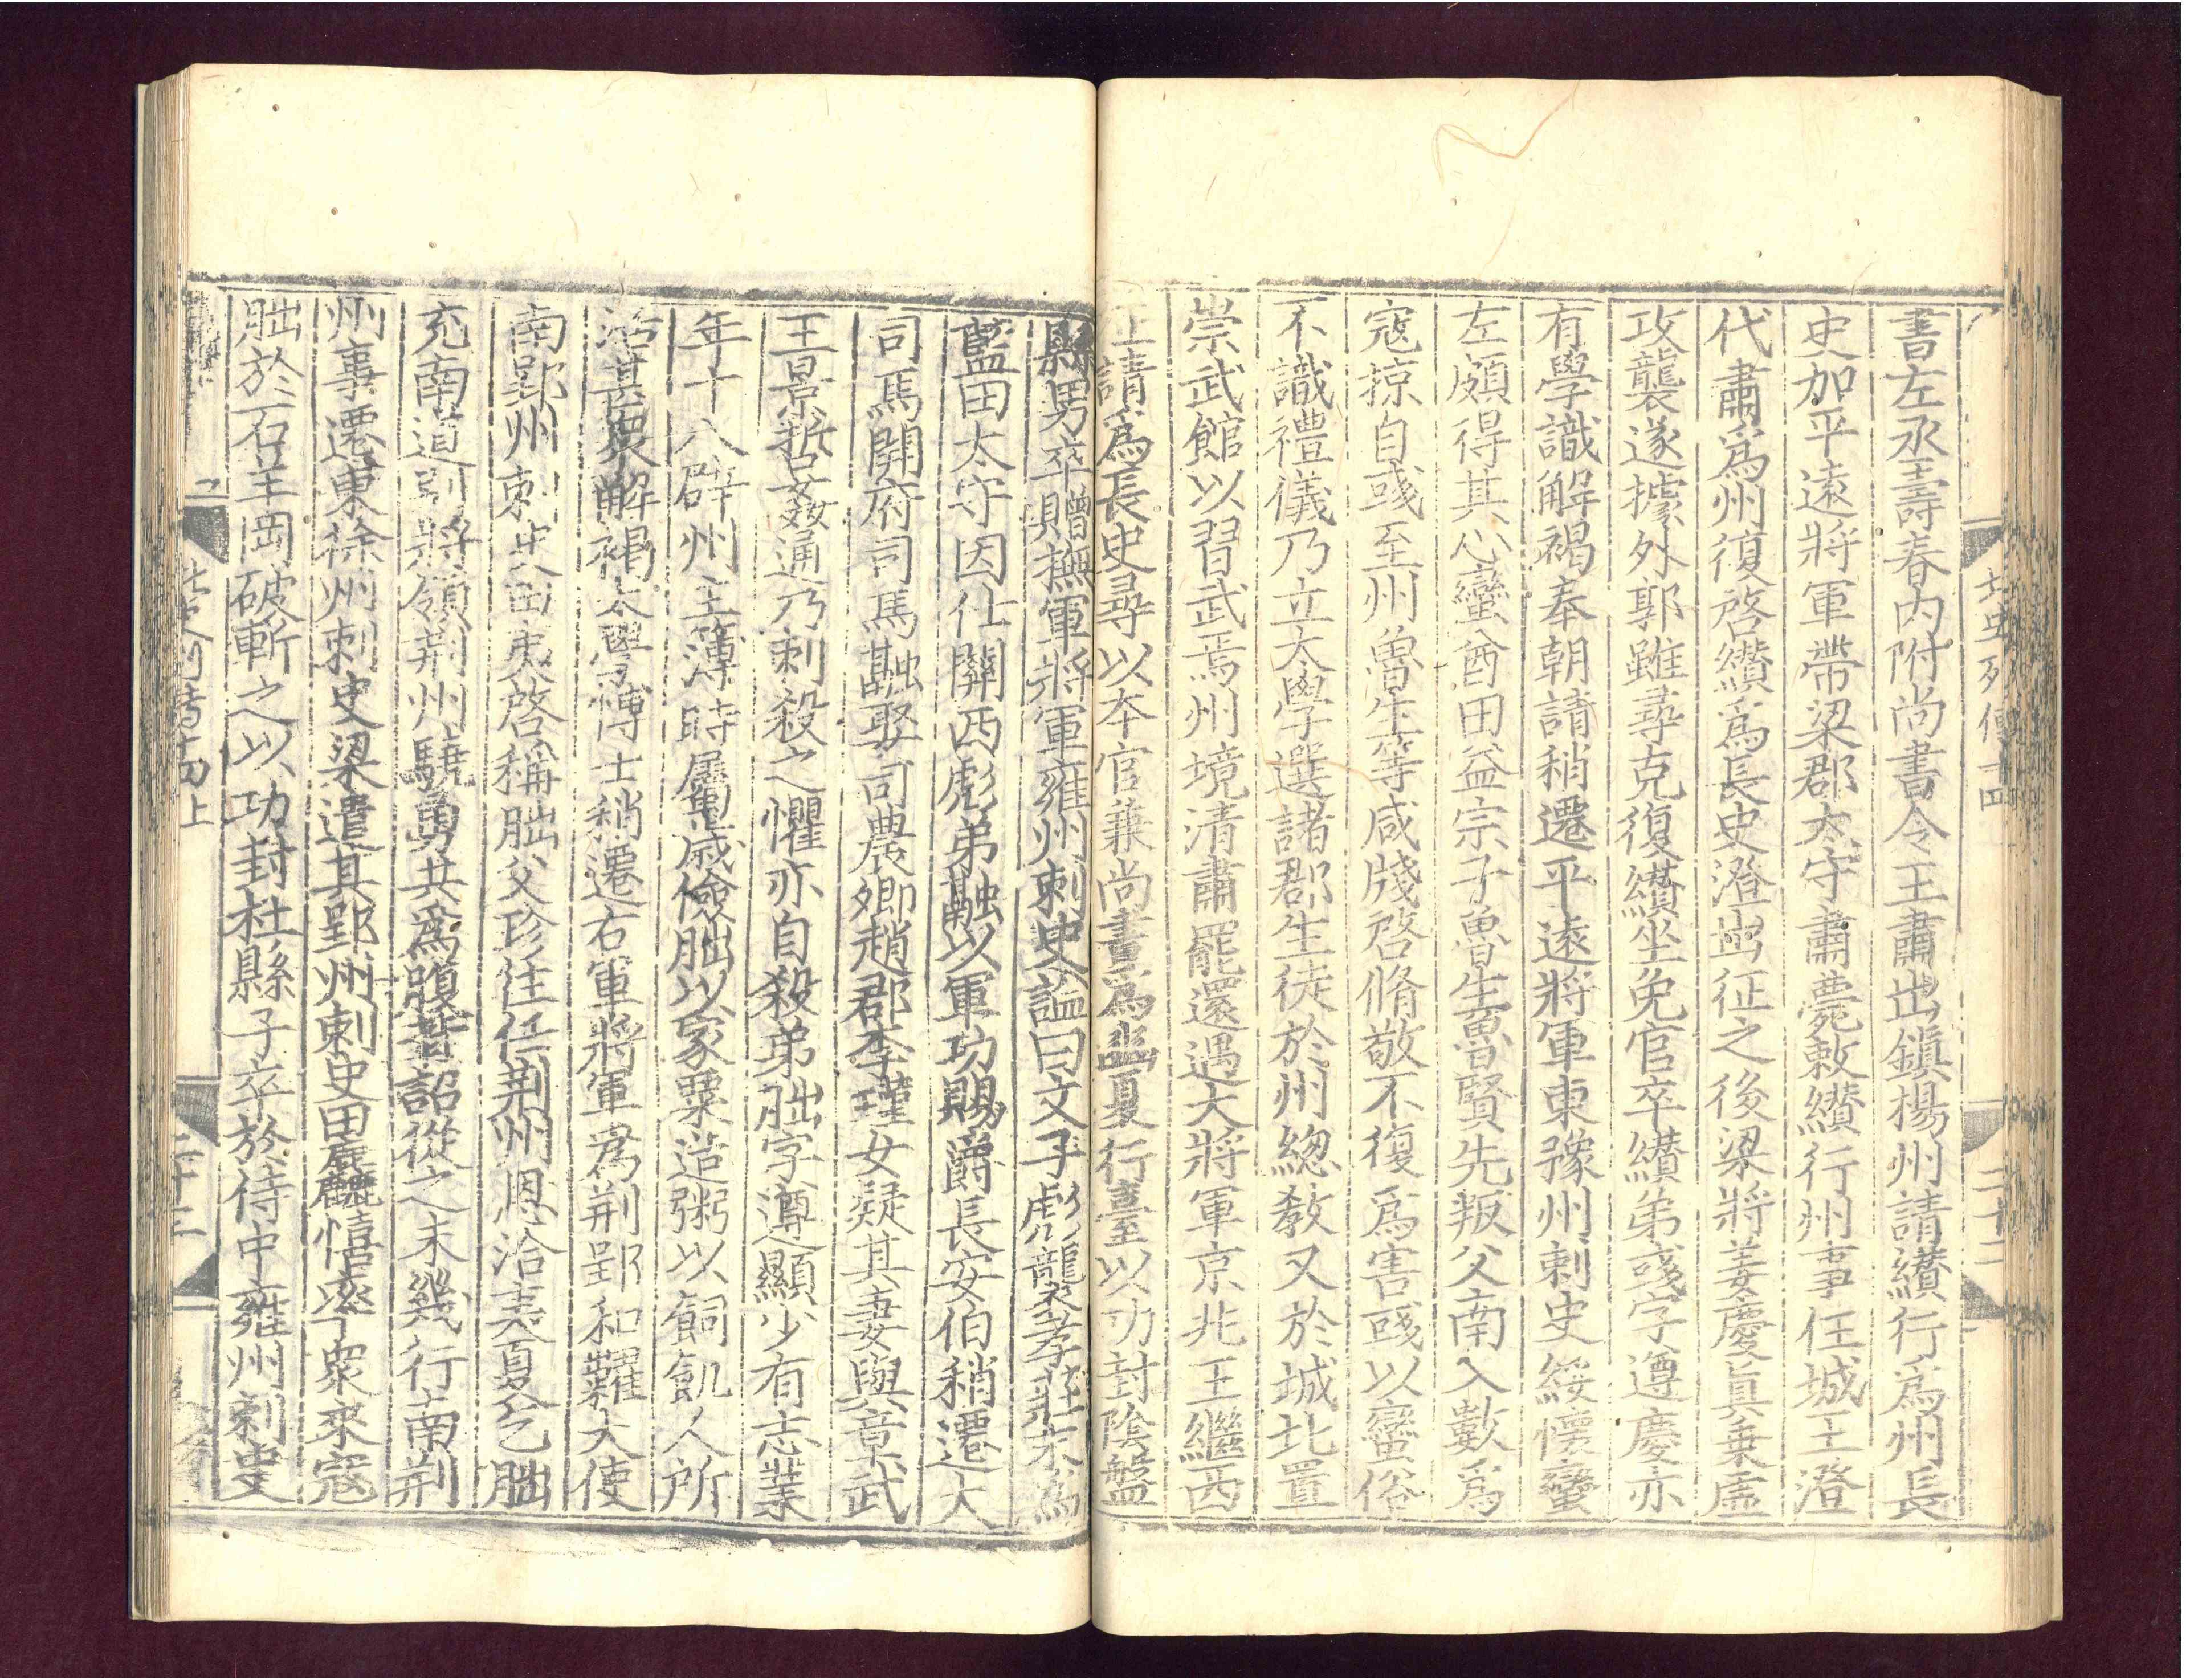 北史列傳十四
二十二
書左丞壽春內附尚書令王肅出鎮揚州請纉行爲州長
史加平遠將軍帶梁郡太守肅薨敕纉行州事任城王澄
代肅爲州復啓纉爲長史澄出征之後梁將姜慶眞乗虛
攻襲遂據外郭雖尋克復纉坐免官卒纉弟彧字遵慶亦
有學識解褐奉朝請稍遷平遠將軍東豫州刺史綏懷蠻
左頗得其心蠻酋田益宗子魯生魯賢先叛父南入數爲
寇掠自彧至州魯生等咸牋啓脩敬不復爲害彧以蠻俗
不識禮儀乃立太學選諸郡生徒於州緫敎又於城北置
崇武館以習武焉州境清肅罷還遇大將軍京兆王繼西
征請爲長史尋以本官兼尚書爲豳夏行臺以功封陰盤
縣男卒贈撫軍將軍雍州刺史謚曰文子彪襲孝莊末爲
藍田太守因仕關西彪弟融以軍功賜爵長安伯稍遷大
司馬開府司馬融娶司農卿趙郡李瑾女疑其妻與章武
王景哲姦通乃刺殺之懼亦自殺弟朏字遵顯少有志業
年十八辟州主簿時屬歳儉朏以家粟造粥以飼飢人所
活甚衆解褐太學博士稍遷右軍將軍爲荆郢和糴大使
南郢州刺史田夷啓稱朏父珍往任荆州恩洽夷夏乞朏
充南道別將領荆州驍勇共爲腹背詔從之未幾行南荆
州事遷東徐州刺史梁遣其郢州刺史田麤憘率衆來寇
朏於石羊岡破斬之以功封杜縣子卒於侍中雍州刺史
北史列傳十四上
二十三